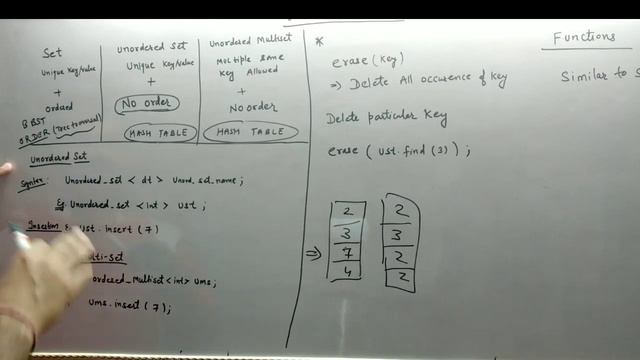 Set
Unique Key/value
+
ordered
B BST
ORDER (Tree traversal)
Unordered Set
Unique Key/value
+
No order
HASH TABLE
Unordered Multiset
Multiple same
Key Allowed
+
No order
HASH TABLE
Unordered Set
Syntax: Unordered_set < dt > Unord_set_name;
Eg. Unordered_set <int> ust;
Insertion ust.insert(7)
ulti-set
ordered_Multiset<int> ums;
ums.insert(7);
*
erase(Key)
⇒ Delete All occurence of Key
Delete particular Key
erase( ust.find(3));
⇒
2
3
7
4
2
3
2
2
Functions
Similar to S